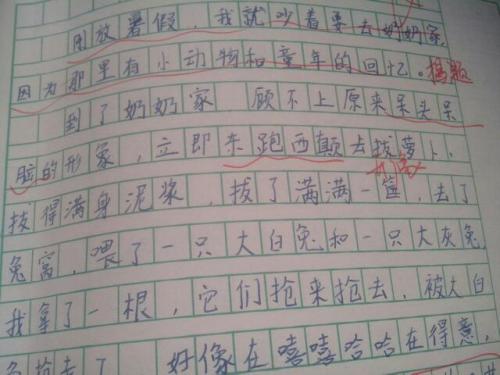 刚放暑假，我就吵着要去奶奶家，
因为那里有小动物和童年的回忆。
到了奶奶家 顾不上原来呆头呆
脑的形象，立即东跑西颠去拔萝卜，
拔得满身泥浆，拔了满满一筐，去了
兔窝，喂了一只大白兔和一只大灰兔，
我拿了一根，它们抢来抢去，被大白
兔抢去了 好像在嘻嘻哈哈在得意，